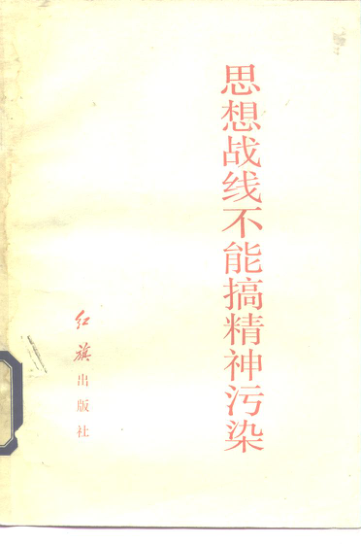 思想战线不能搞精神污染
红旗出版社